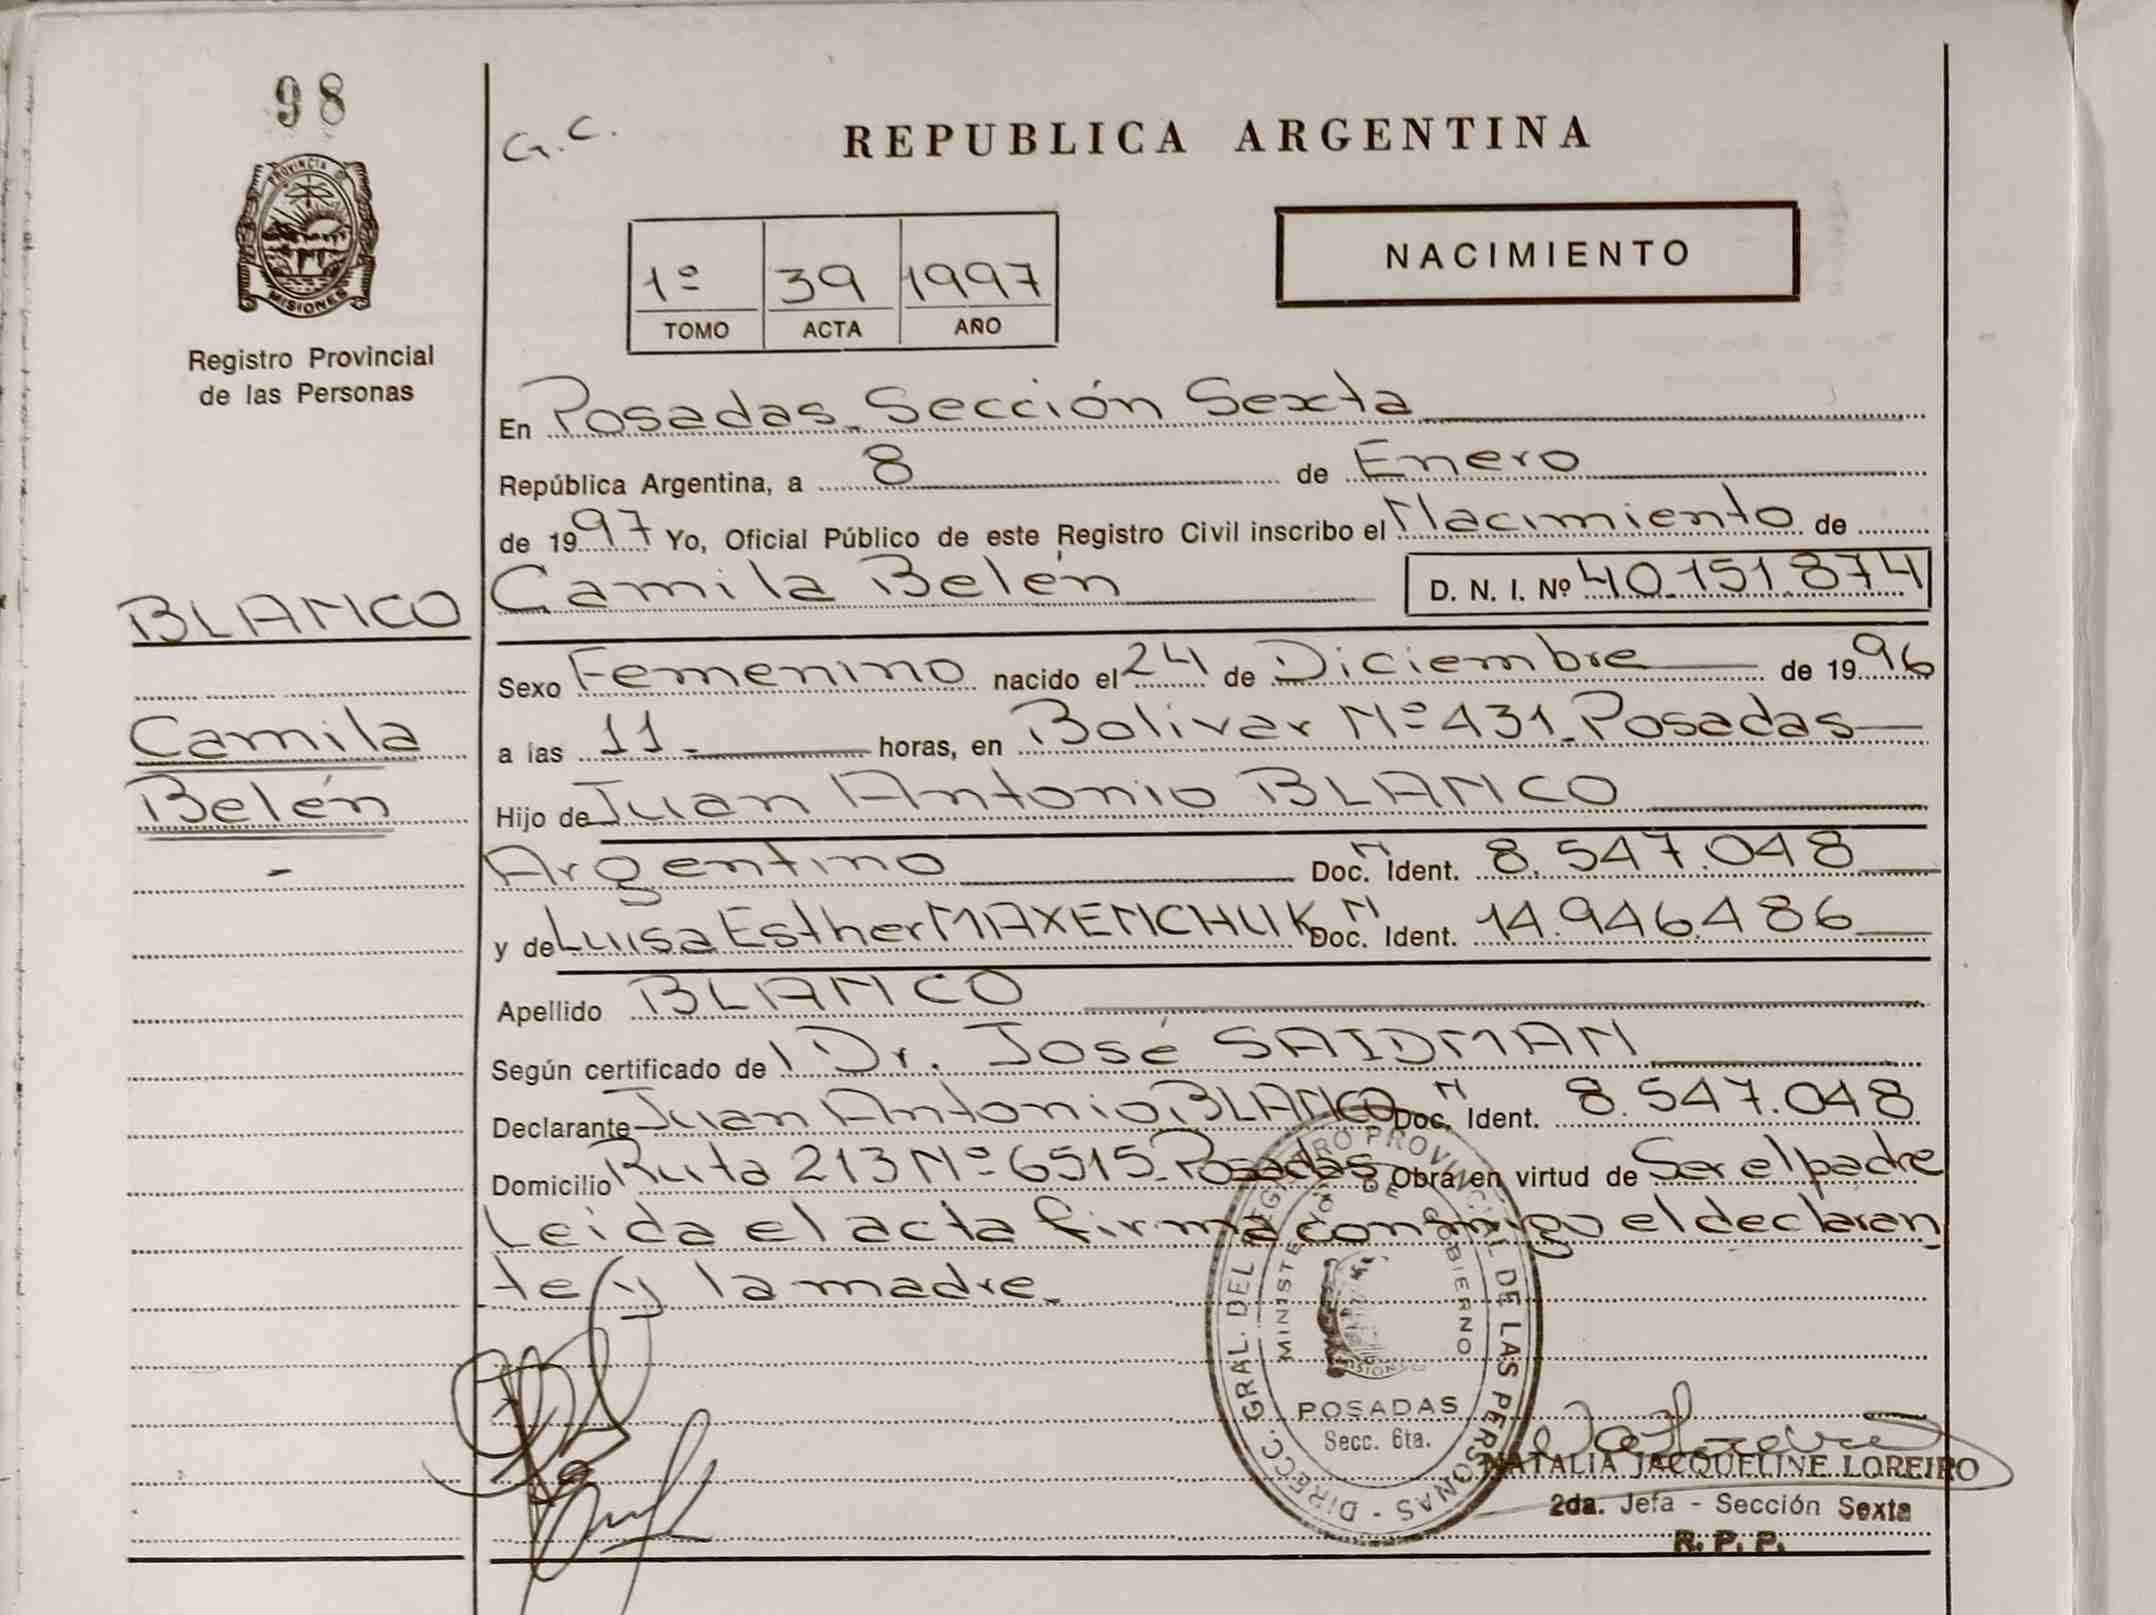 98
PROVINCIA D
MISIONES
Registro Provincial
de las Personas
G.C.
REPUBLICA ARGENTINA
1º 39 1997
TOMO ACTA AÑO
NACIMIENTO
En Posadas Sección Sexta
República Argentina, a 8 de Enero
de 1997 Yo, Oficial Público de este Registro Civil inscribo el Nacimiento de
Camila Belén D. N. I. Nº 40.151.874
BLANCO
Camila
Belén
-
Sexo Femenino nacido el 24 de Diciembre de 1996
a las 11 horas, en Bolivar Nº 431 Posadas
Hijo de Juan Antonio BLANCO
Argentino Doc. N Ident. 8.547.048
y de Luisa Esther MAXENCHUK Doc. N Ident. 14.946.486
Apellido BLANCO
Según certificado de Dr. José SAIDMAN
Declarante Juan Antonio BLANCO Doc. N Ident. 8.547.048
Domicilio Ruta 213 Nº 6515 Posadas Obra en virtud de Ser el padre
Leida el acta firma conmigo el declaran
te y la madre.
DIRECC. GRAL. DEL REGISTRO PROVINCIAL DE LAS PERSONAS -
MINISTERIO DE GOBIERNO
MISIONES
POSADAS
Secc. 6ta.
NATALIA JACQUELINE LOREIRO
2da. Jefa - Sección Sexta
R. P. P.